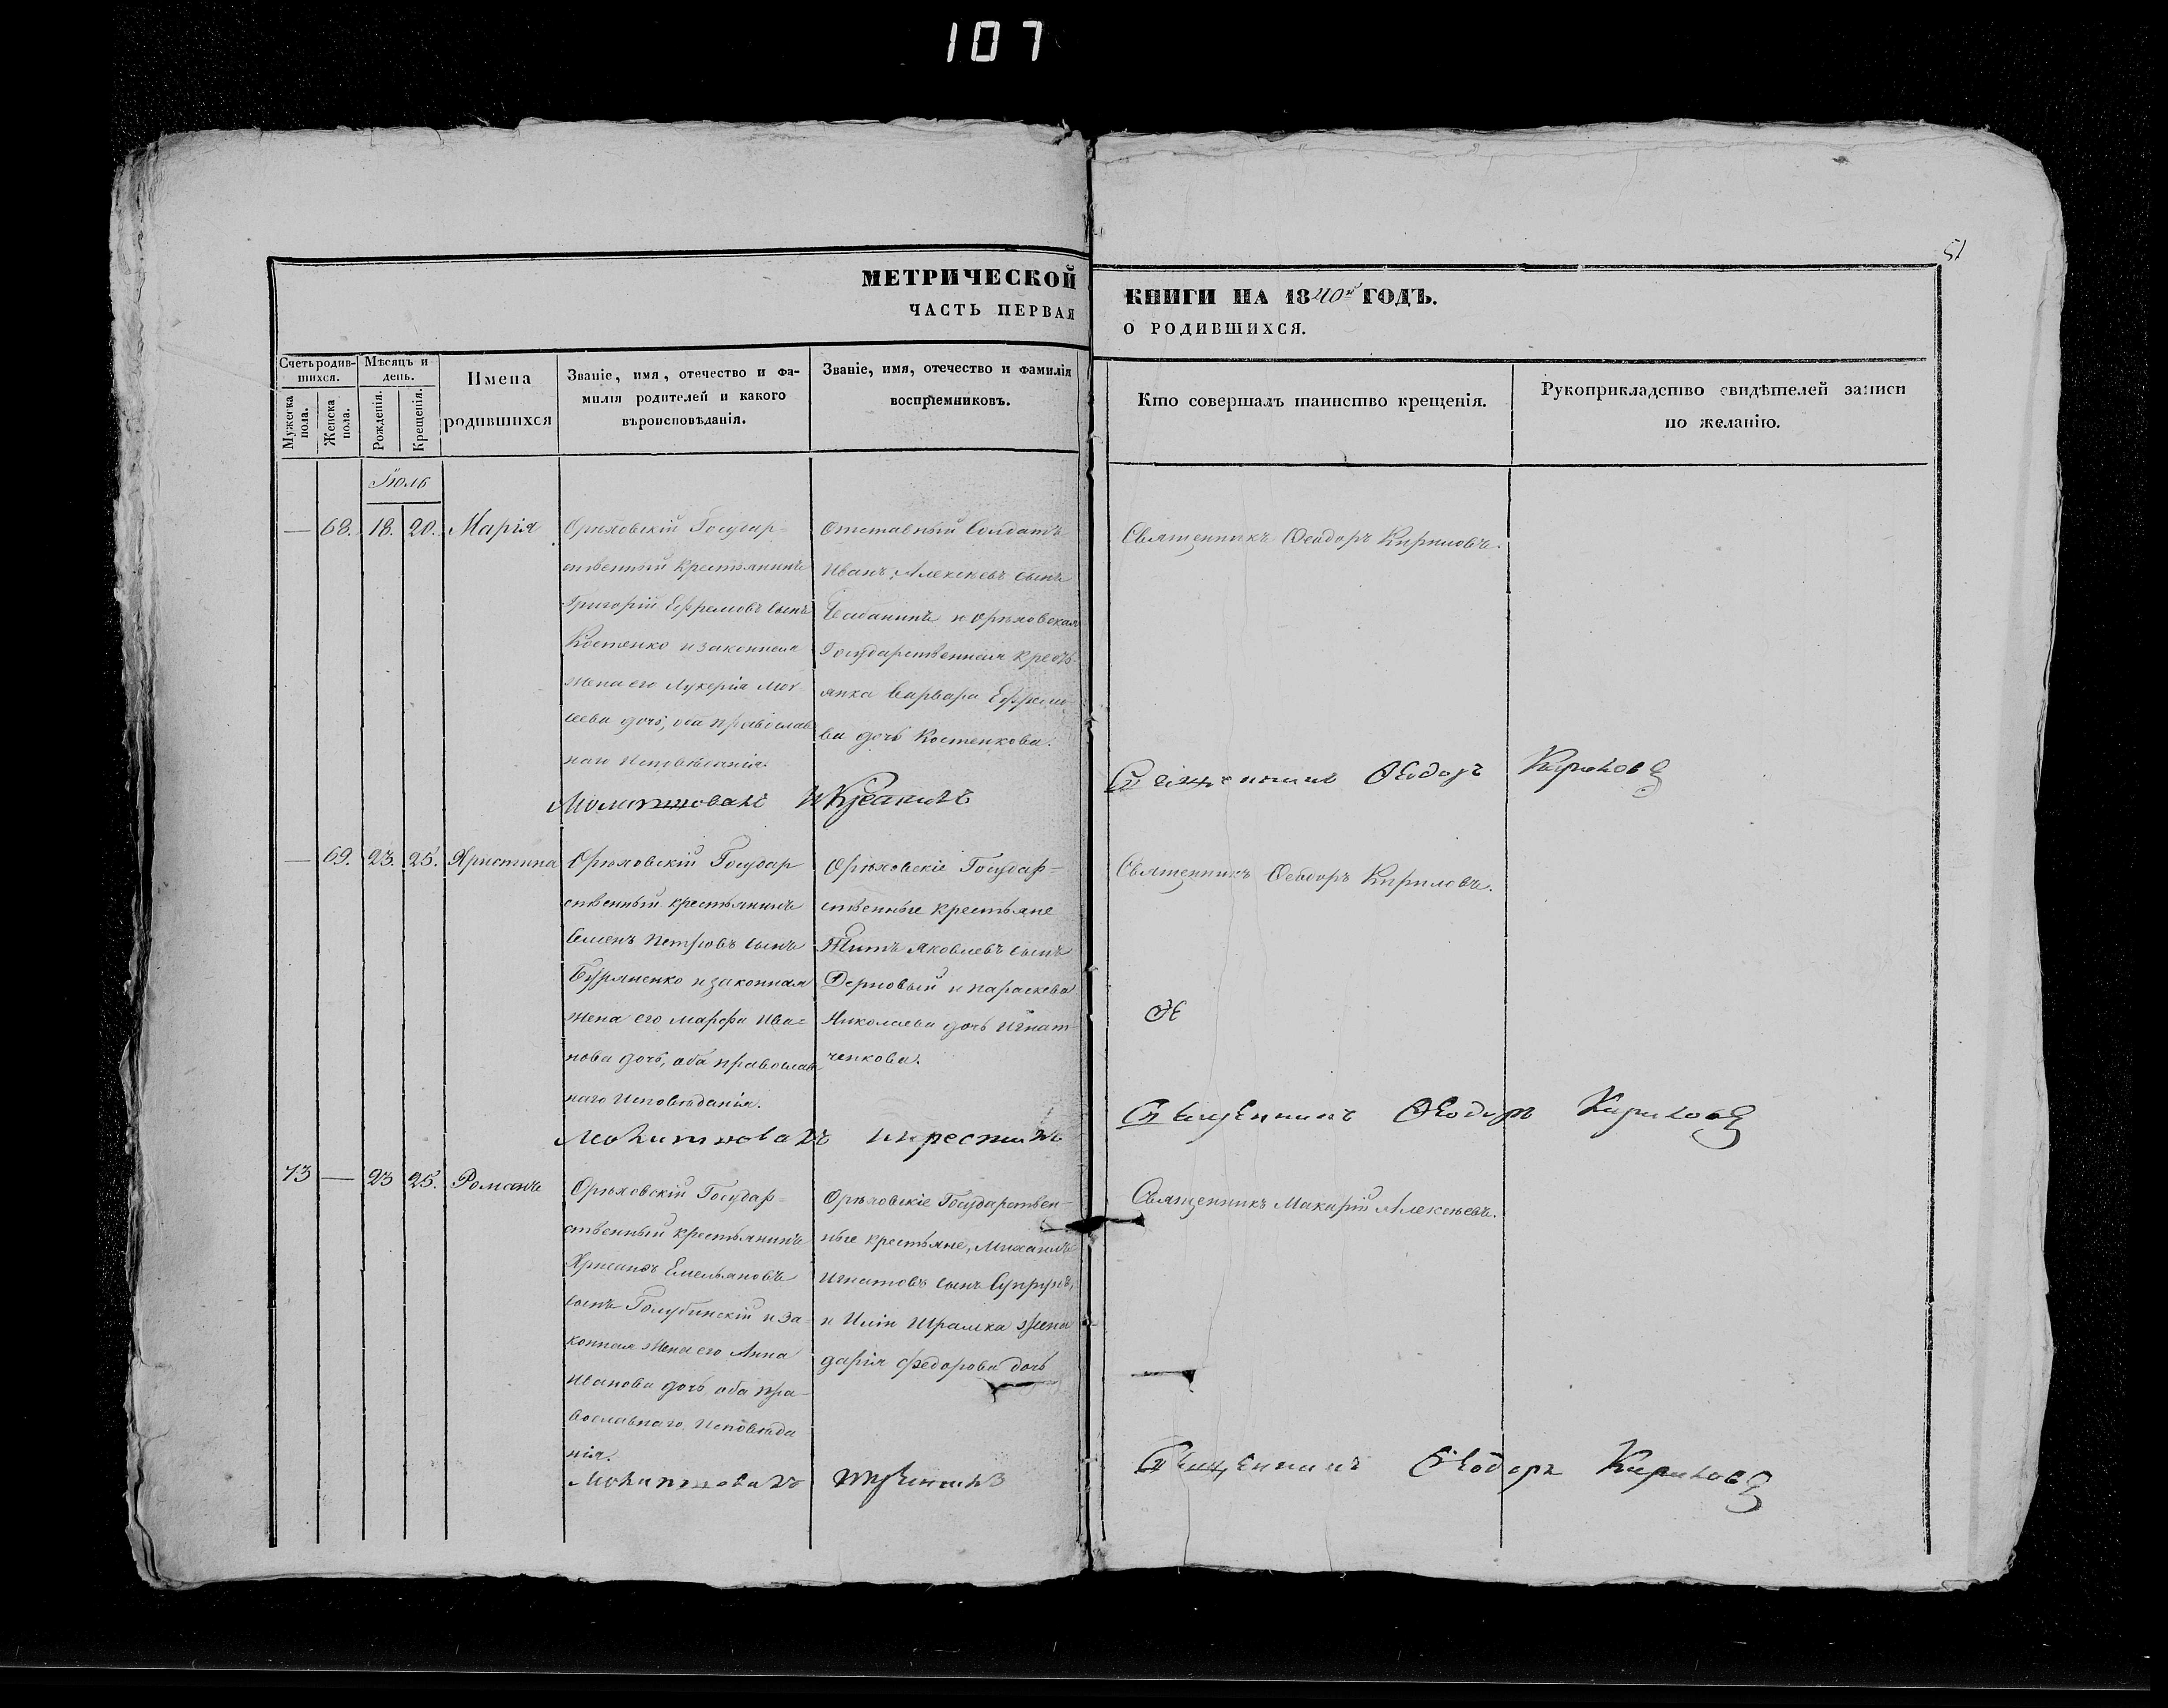 107
51
МЕТРИЧЕСКОЙ КНИГИ НА 1840й ГОДЪ.
ЧАСТЬ ПЕРВАЯ О РОДИВШИХСЯ.
Счетъ родив-
шихся.
Мужеска пола.
Женска пола.
Мѣсяцъ и
день.
Рожденія.
Крещенія.
Имена
родившихся
Званіе, имя, отечество и фа-
милія родителей и какого
вѣроисповѣданія.
Званіе, имя, отечество и фамилія
воспріемниковъ.
Кто совершалъ таинство крещенія.
Рукоприкладство свидѣтелей записи
по желанію.
Іюль
— 68. 18. 20. Марія
Орѣховскій Государ-
ственный крестьянинъ
Григорій Ефремовъ сынъ
Костенко и законная
жена его Лукерія Мог-
сеева дочь, оба православ
наго Исповѣданія.
Отставный Солдатъ
Иванъ Алексѣевъ сынъ
и Орѣховская
Государственная кресть-
янка Варвара Ефремо-
ва дочь Костенкова.
Священникъ Ѳеодоръ Кириловъ.
Молитвовалъ и Крестилъ
Священникъ Ѳеодоръ Кириловъ
— 69. 23. 25. Христина
Орѣховскій Государ
ственный крестьянинъ
Семенъ Петровъ сынъ
Буряненко и законная
жена его Марфа Ива=
нова дочь, оба православ
наго Исповѣданія.
Орѣховскіе Государ=
ственные крестьяне
Титъ Яковлевъ сынъ
Дерновый и Параскева
Николаева дочь Игнат-
ченкова.
Священникъ Ѳеодоръ Кириловъ.
Молитвовалъ и крестилъ
Священникъ Ѳеодоръ Кириловъ
73 — 23 25. Романъ
Орѣховскій Государ=
ственный крестьянинъ
Хрисанфъ Емельяновъ
сынъ Голубинскій и за-
конная жена его Анна
Иванова дочь оба пра-
вославнаго Исповѣда
нія.
Орѣховскіе Государствен-
ные крестьяне, Михаилъ
Игнатовъ сынъ Супрунъ,
и Иліи Шрамка жена
Дарія Федорова дочь
Священникъ Макарій Алексѣевъ.
Молитвовалъ и Крестилъ
Священникъ Ѳеодоръ Кириловъ